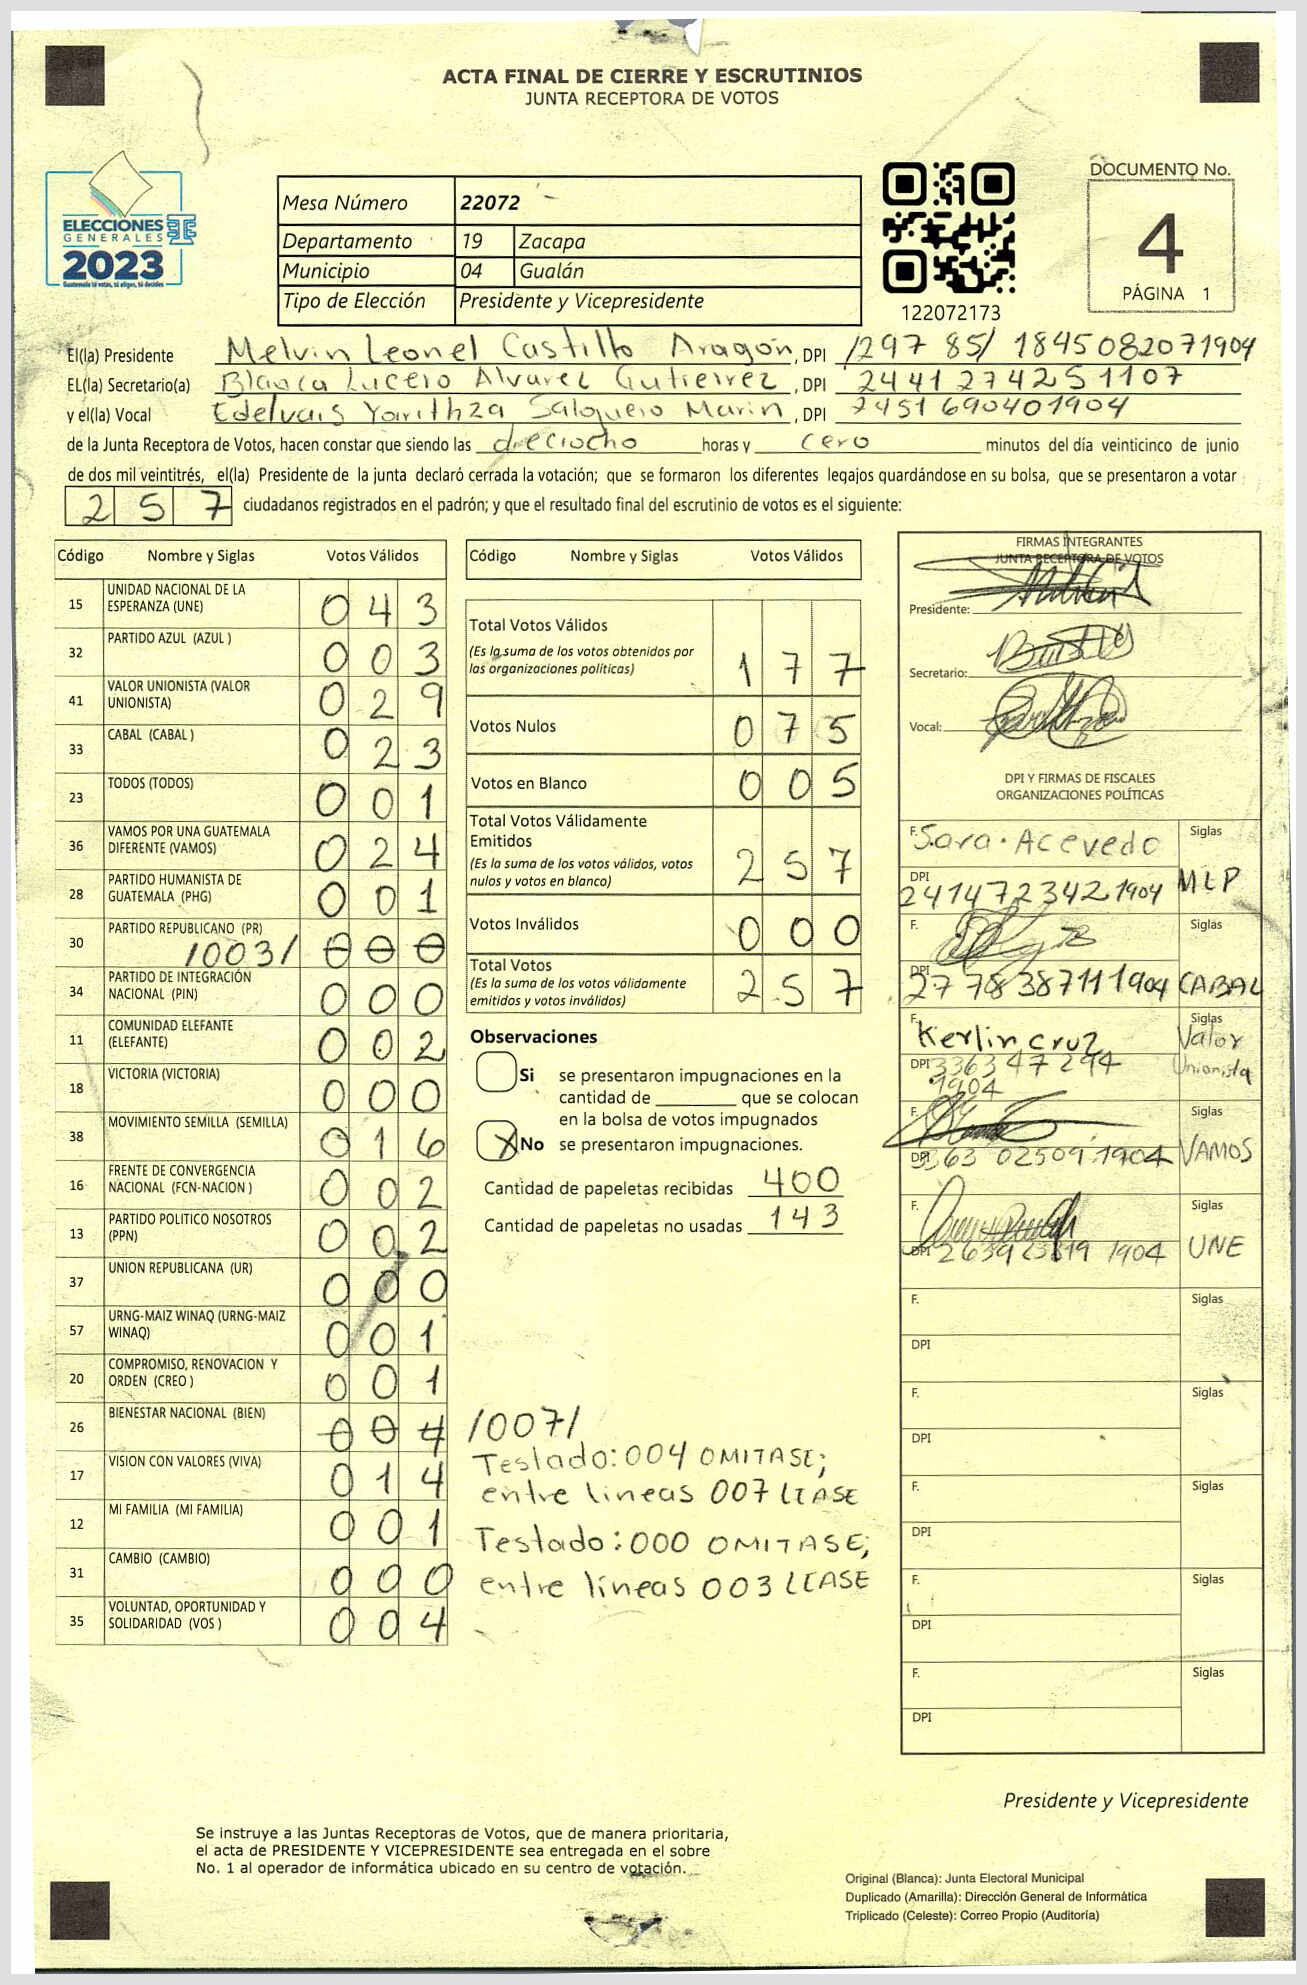 ACTA FINAL DE CIERRE Y ESCRUTINIOS
JUNTA RECEPTORA DE VOTOS
ELECCIONES
GENERALES
2023
Guatemala tú votas, tú eliges, tú decides
Mesa Número 22072
Departamento 19 Zacapa
Municipio 04 Gualán
Tipo de Elección Presidente y Vicepresidente
122072173
DOCUMENTO No.
4
PÁGINA 1
El(la) Presidente Melvin Leonel Castillo Aragón, DPI /297 85/ 1845082071904
EL(la) Secretario(a) Blanca Lucero Alvarez Gutierrez, DPI 2441274251107
y el(la) Vocal Edelvais Yarithza Salguero Marin, DPI 2451690401904
de la Junta Receptora de Votos, hacen constar que siendo las dieciocho horas y cero minutos del día veinticinco de junio
de dos mil veintitrés, el(la) Presidente de la junta declaró cerrada la votación; que se formaron los diferentes legajos quardándose en su bolsa, que se presentaron a votar
257 ciudadanos registrados en el padrón; y que el resultado final del escrutinio de votos es el siguiente:
Código Nombre y Siglas Votos Válidos
15 UNIDAD NACIONAL DE LA ESPERANZA (UNE) 043
32 PARTIDO AZUL (AZUL ) 003
41 VALOR UNIONISTA (VALOR UNIONISTA) 029
33 CABAL (CABAL ) 023
23 TODOS (TODOS) 001
36 VAMOS POR UNA GUATEMALA DIFERENTE (VAMOS) 024
28 PARTIDO HUMANISTA DE GUATEMALA (PHG) 001
30 PARTIDO REPUBLICANO (PR) /003/ 000
34 PARTIDO DE INTEGRACIÓN NACIONAL (PIN) 000
11 COMUNIDAD ELEFANTE (ELEFANTE) 002
18 VICTORIA (VICTORIA) 000
38 MOVIMIENTO SEMILLA (SEMILLA) 016
16 FRENTE DE CONVERGENCIA NACIONAL (FCN-NACION ) 002
13 PARTIDO POLITICO NOSOTROS (PPN) 002
37 UNION REPUBLICANA (UR) 000
57 URNG-MAIZ WINAQ (URNG-MAIZ WINAQ) 001
20 COMPROMISO, RENOVACION Y ORDEN (CREO ) 001
26 BIENESTAR NACIONAL (BIEN) 004 /007/
17 VISION CON VALORES (VIVA) 014
12 MI FAMILIA (MI FAMILIA) 001
31 CAMBIO (CAMBIO) 000
35 VOLUNTAD, OPORTUNIDAD Y SOLIDARIDAD (VOS ) 004
Código Nombre y Siglas Votos Válidos
Total Votos Válidos 177
(Es la suma de los votos obtenidos por
las organizaciones políticas)
Votos Nulos 075
Votos en Blanco 005
Total Votos Válidamente
Emitidos 257
(Es la suma de los votos válidos, votos
nulos y votos en blanco)
Votos Inválidos 000
Total Votos 257
(Es la suma de los votos válidamente
emitidos y votos inválidos)
Observaciones
Si se presentaron impugnaciones en la
cantidad de ________ que se colocan
en la bolsa de votos impugnados
X No se presentaron impugnaciones.
Cantidad de papeletas recibidas 400
Cantidad de papeletas no usadas 143
Testado: 004 OMITASE;
entre lineas 007 LEASE
Testado: 000 OMITASE;
entre líneas 003 LEASE
FIRMAS INTEGRANTES
JUNTA RECEPTORA DE VOTOS
Presidente:
Secretario:
Vocal:
DPI Y FIRMAS DE FISCALES
ORGANIZACIONES POLÍTICAS
F. Sara. Acevedo Siglas
DPI 2414723421904 MLP
F. Siglas
DPI 2778387111904 CABAL
F. Kerlin Cruz Siglas Valor
DPI 336347294 Unionista
1904
F. Siglas
DPI 3363 02509 1904 VAMOS
F. Siglas
DPI 1904 UNE
F. Siglas
DPI
F. Siglas
DPI
F. Siglas
DPI
F. Siglas
DPI
F. Siglas
DPI
Presidente y Vicepresidente
Se instruye a las Juntas Receptoras de Votos, que de manera prioritaria,
el acta de PRESIDENTE Y VICEPRESIDENTE sea entregada en el sobre
No. 1 al operador de informática ubicado en su centro de votación.
Original (Blanca): Junta Electoral Municipal
Duplicado (Amarilla): Dirección General de Informática
Triplicado (Celeste): Correo Propio (Auditoría)